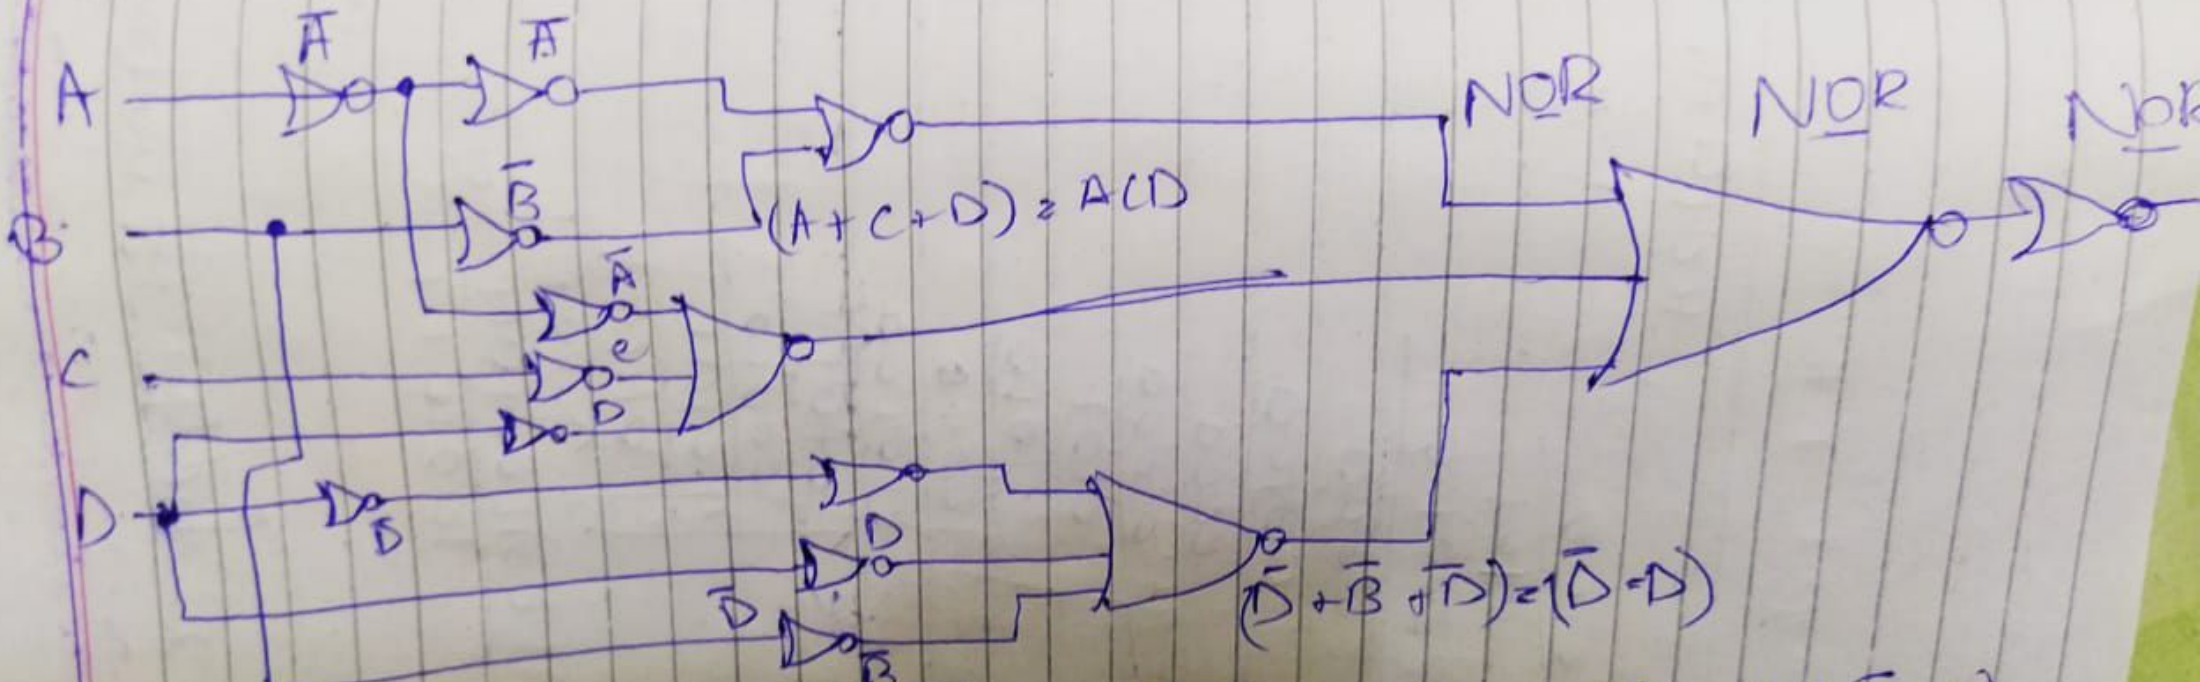 A̅ A̅
A NOR NOR NOR
B̅
B (A + C + D) = A(D
A̅
C C
D
D D̅ D
D̅ (D̅ + B̅ + D̅) = (D̅ = D)
B̅